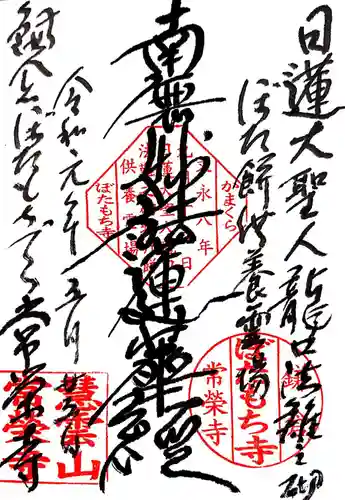 日蓮大聖人龍口法難之砌
ぼた餅供養霊場
南無妙法蓮華経
令和元年五月
鎌倉ぼたもちでら
常栄寺
文永八年
日蓮大
供養霊場
かまくら
ぼたもち寺
鎌倉
ぼたもち寺
常榮寺
慧雲山
常榮寺